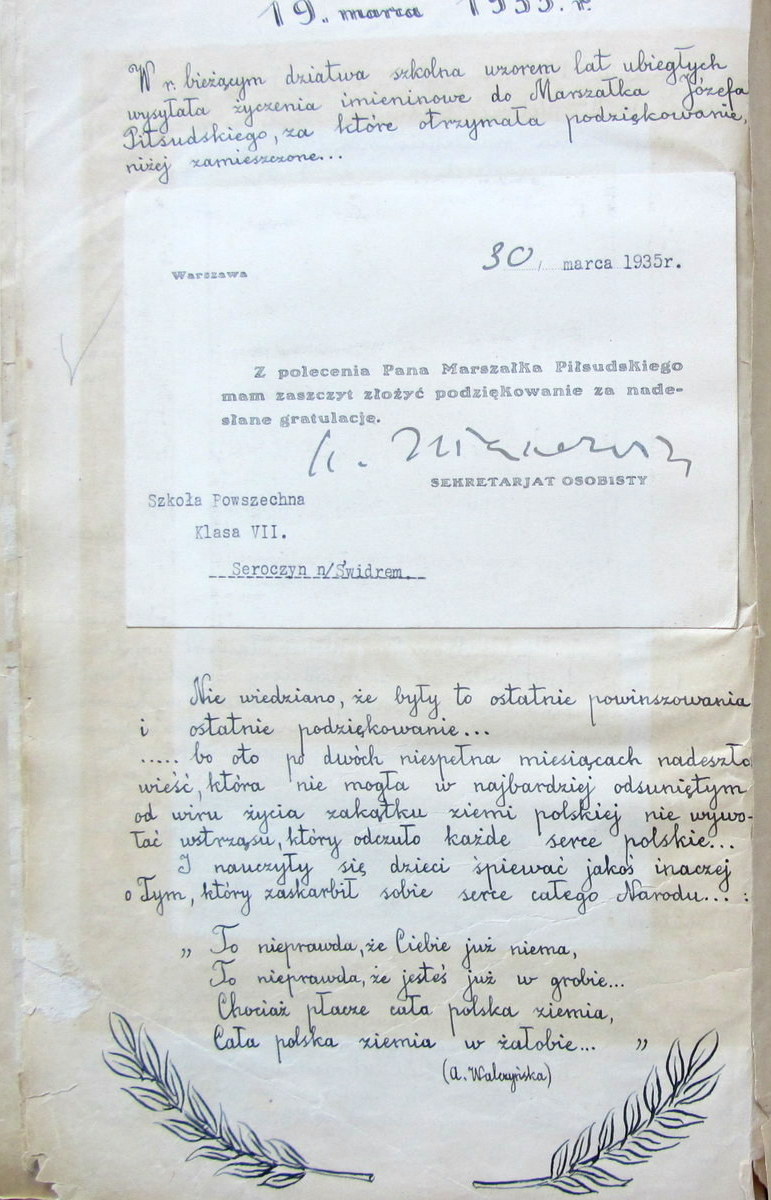 19. marca 1935. r.
W r. bieżącym dziatwa szkolna wzorem lat ubiegłych
wysyłała życzenia imieninowe do Marszałka Józefa
Piłsudskiego, za które otrzymała podziękowanie,
niżej zamieszczone...
30, marca 1935r.
Warszawa
Z polecenia Pana Marszałka Piłsudskiego
mam zaszczyt złożyć podziękowanie za nade-
słane gratulację.
SEKRETARJAT OSOBISTY
Szkoła Powszechna
Klasa VII.
Seroczyn n/Świdrem.
Nie wiedziano, że były to ostatnie powinszowania
i ostatnie podziękowanie...
..... bo oto po dwóch niespełna miesiącach nadeszła
wieść, która nie mogła w najbardziej odsuniętym
od wiru życia zakątku ziemi polskiej nie wywo-
łać wstrząsu, który odczuło każde serce polskie...
I nauczyły się dzieci śpiewać jakoś inaczej
o Tym, który zaskarbił sobie serce całego Narodu... :
„ To nieprawda, że Ciebie już niema,
To nieprawda, że jesteś już w grobie...
Chociaż płacze cała polska ziemia,
Cała polska ziemia w żałobie... ”
(A. Walczyńska)